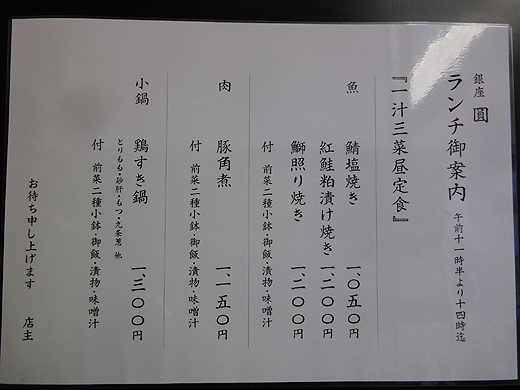 銀座 圓
ランチ御案内 午前十一時半より十四時迄
『一汁三菜昼定食』
魚
鯖塩焼き 一、〇五〇円
紅鮭粕漬け焼き 一、二〇〇円
鰤照り焼き 一、二〇〇円
付 前菜二種小鉢・御飯・漬物・味噌汁
肉
豚角煮 一、一五〇円
付 前菜二種小鉢・御飯・漬物・味噌汁
小鍋
鶏すき鍋 一、三〇〇円
とりもも・砂肝・もつ・九条葱 他
付 前菜二種小鉢・御飯・漬物・味噌汁
お待ち申し上げます 店主